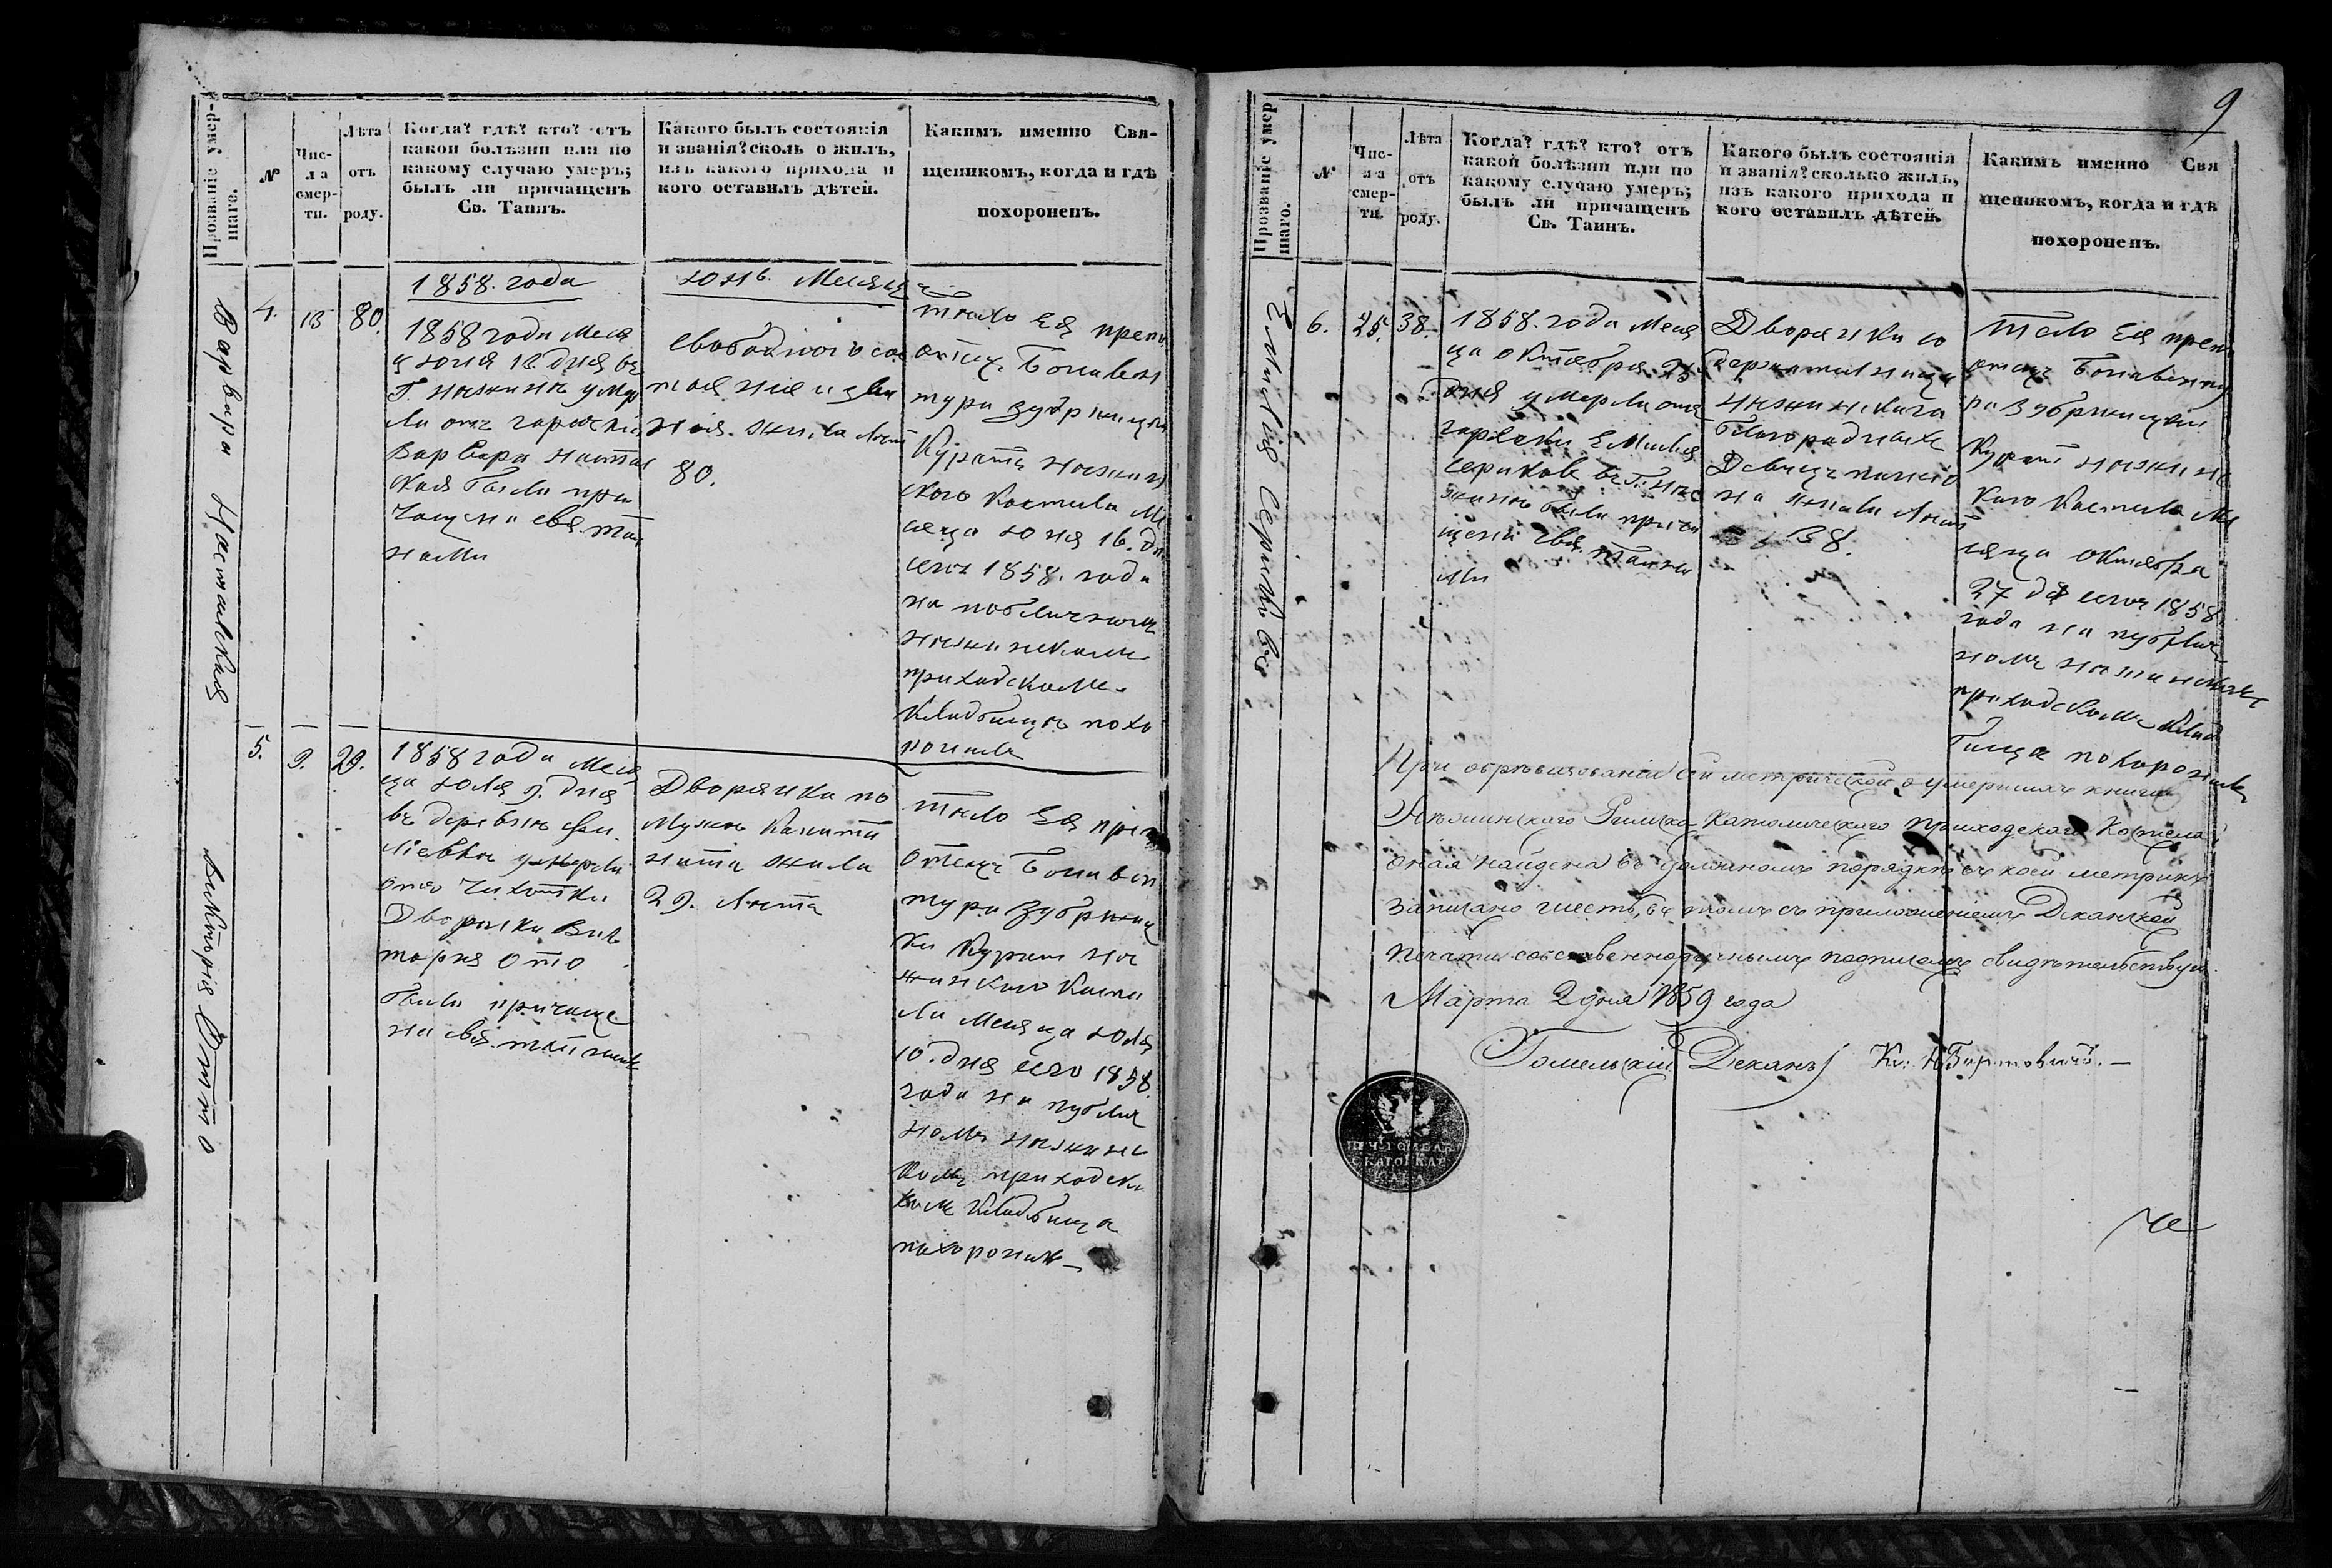 Прозваніе умер-
шаго.
№
Чис-
ла
смер-
ти.
Лѣта
отъ
роду.
Когда? гдѣ? кто? отъ
какой болѣзни или по
какому случаю умеръ;
былъ ли причащенъ
Св. Таинъ.
Какого былъ состоянія
и званія? сколь о жилъ,
изъ какого прихода и
кого оставилъ дѣтей.
Какимъ именно Свя-
щеникомъ, когда и гдѣ
похороненъ.
Варвара
4.
13
80.
1858. года
1858 года Меся
ц юня 13 дня въ
Г. Нѣжинѣ умер
ла отъ горячки
Варвара
кая была при
чащена свя. тай
нами
Месяць
свободного сос
тояния и зва
ния. жила лѣт
80.
Тѣло Ея преп.
отец. Бонавен
тура
Куратъ Нѣжин
ского Костела Ме
сяца юня 16. дн
сего 1858. года
на
Нѣжинском
приходскоме
Кладбищѣ похо
ронилъ
Викторія Отто
5.
9.
29.
1858 года Меся
ца юля 9. дня
въ деревнѣ
умерла
отъ чахотки
Дворянка Вик
тория Отто
была причаще
на свя. тайнами
Дворянка по
Мужю Капита
ната жила
29. лѣта
тѣло Ея преп
Отецъ Бонавен
тура Зубржиц
ки Курат Не
жинского Косте
ла Месяца юля
10. дня сего 1858.
года на публич
номъ Нѣжинс
комъ приходско
Кладбища
похоронилъ
9
Прозваніе умер
шаго.
№
Чис-
ла
смер-
ти.
Лѣта
отъ
роду.
Когда? гдѣ? кто? отъ
какой болѣзни или по
какому случаю умеръ;
былъ ли причащенъ
Св. Таинъ.
Какого былъ состоянія
и званія? сколько жилъ,
изъ какого прихода и
кого оставилъ дѣтей.
Какимъ именно Свя
щеникомъ, когда и гдѣ
похороненъ.
Емилія
6.
25.
38.
1858. года Меся
ца октября 25
дня умерла отъ
горячки Емилия
въ Г. Нѣ
жинѣ была прича
щена свя. тайна
ми
Дворянка со
держательница
Нѣжинскаго
благородныхъ
Девицъ пансио
на жила лѣт
38.
Тѣло Ея преп
отец Бонавенту
ра Зубржицки
Курат Нѣжинс
каго Костела Ме
сяца октября
27 дня сего 1858
года на публич
номъ Нѣжинскомъ
приходскомъ Клад
бища похоронилъ
При обревизованіи сей метрической о умершихъ книги
Нѣжинскаго Римско-Католическаго приходскаго Костела
оная найдена въ должномъ порядкѣ въ коей метрикъ
записано шесть, въ томъ съ приложеніемъ Деканской
печати собственноручнымъ подписомъ свидѣтельствую.
Марта 2 дня 1859 года
Гомельскій Деканъ